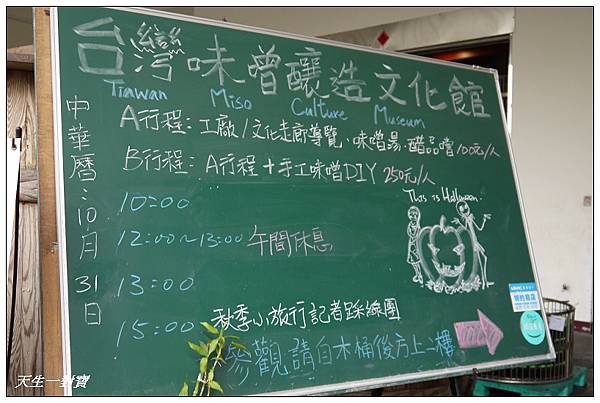 台灣味噌釀造文化館
Tiawan Miso Culture Museum
A行程：工廠/文化走廊導覽、味噌湯、醋品嚐100元/人
B行程：A行程＋手工味噌DIY 250元/人
中華曆：10月31日
10:00
12:00~13:00 午間休息
13:00
15:00 秋季小旅行記者踩線團
This is Halloween
參觀請自木桶後方上2樓
天生一對寶